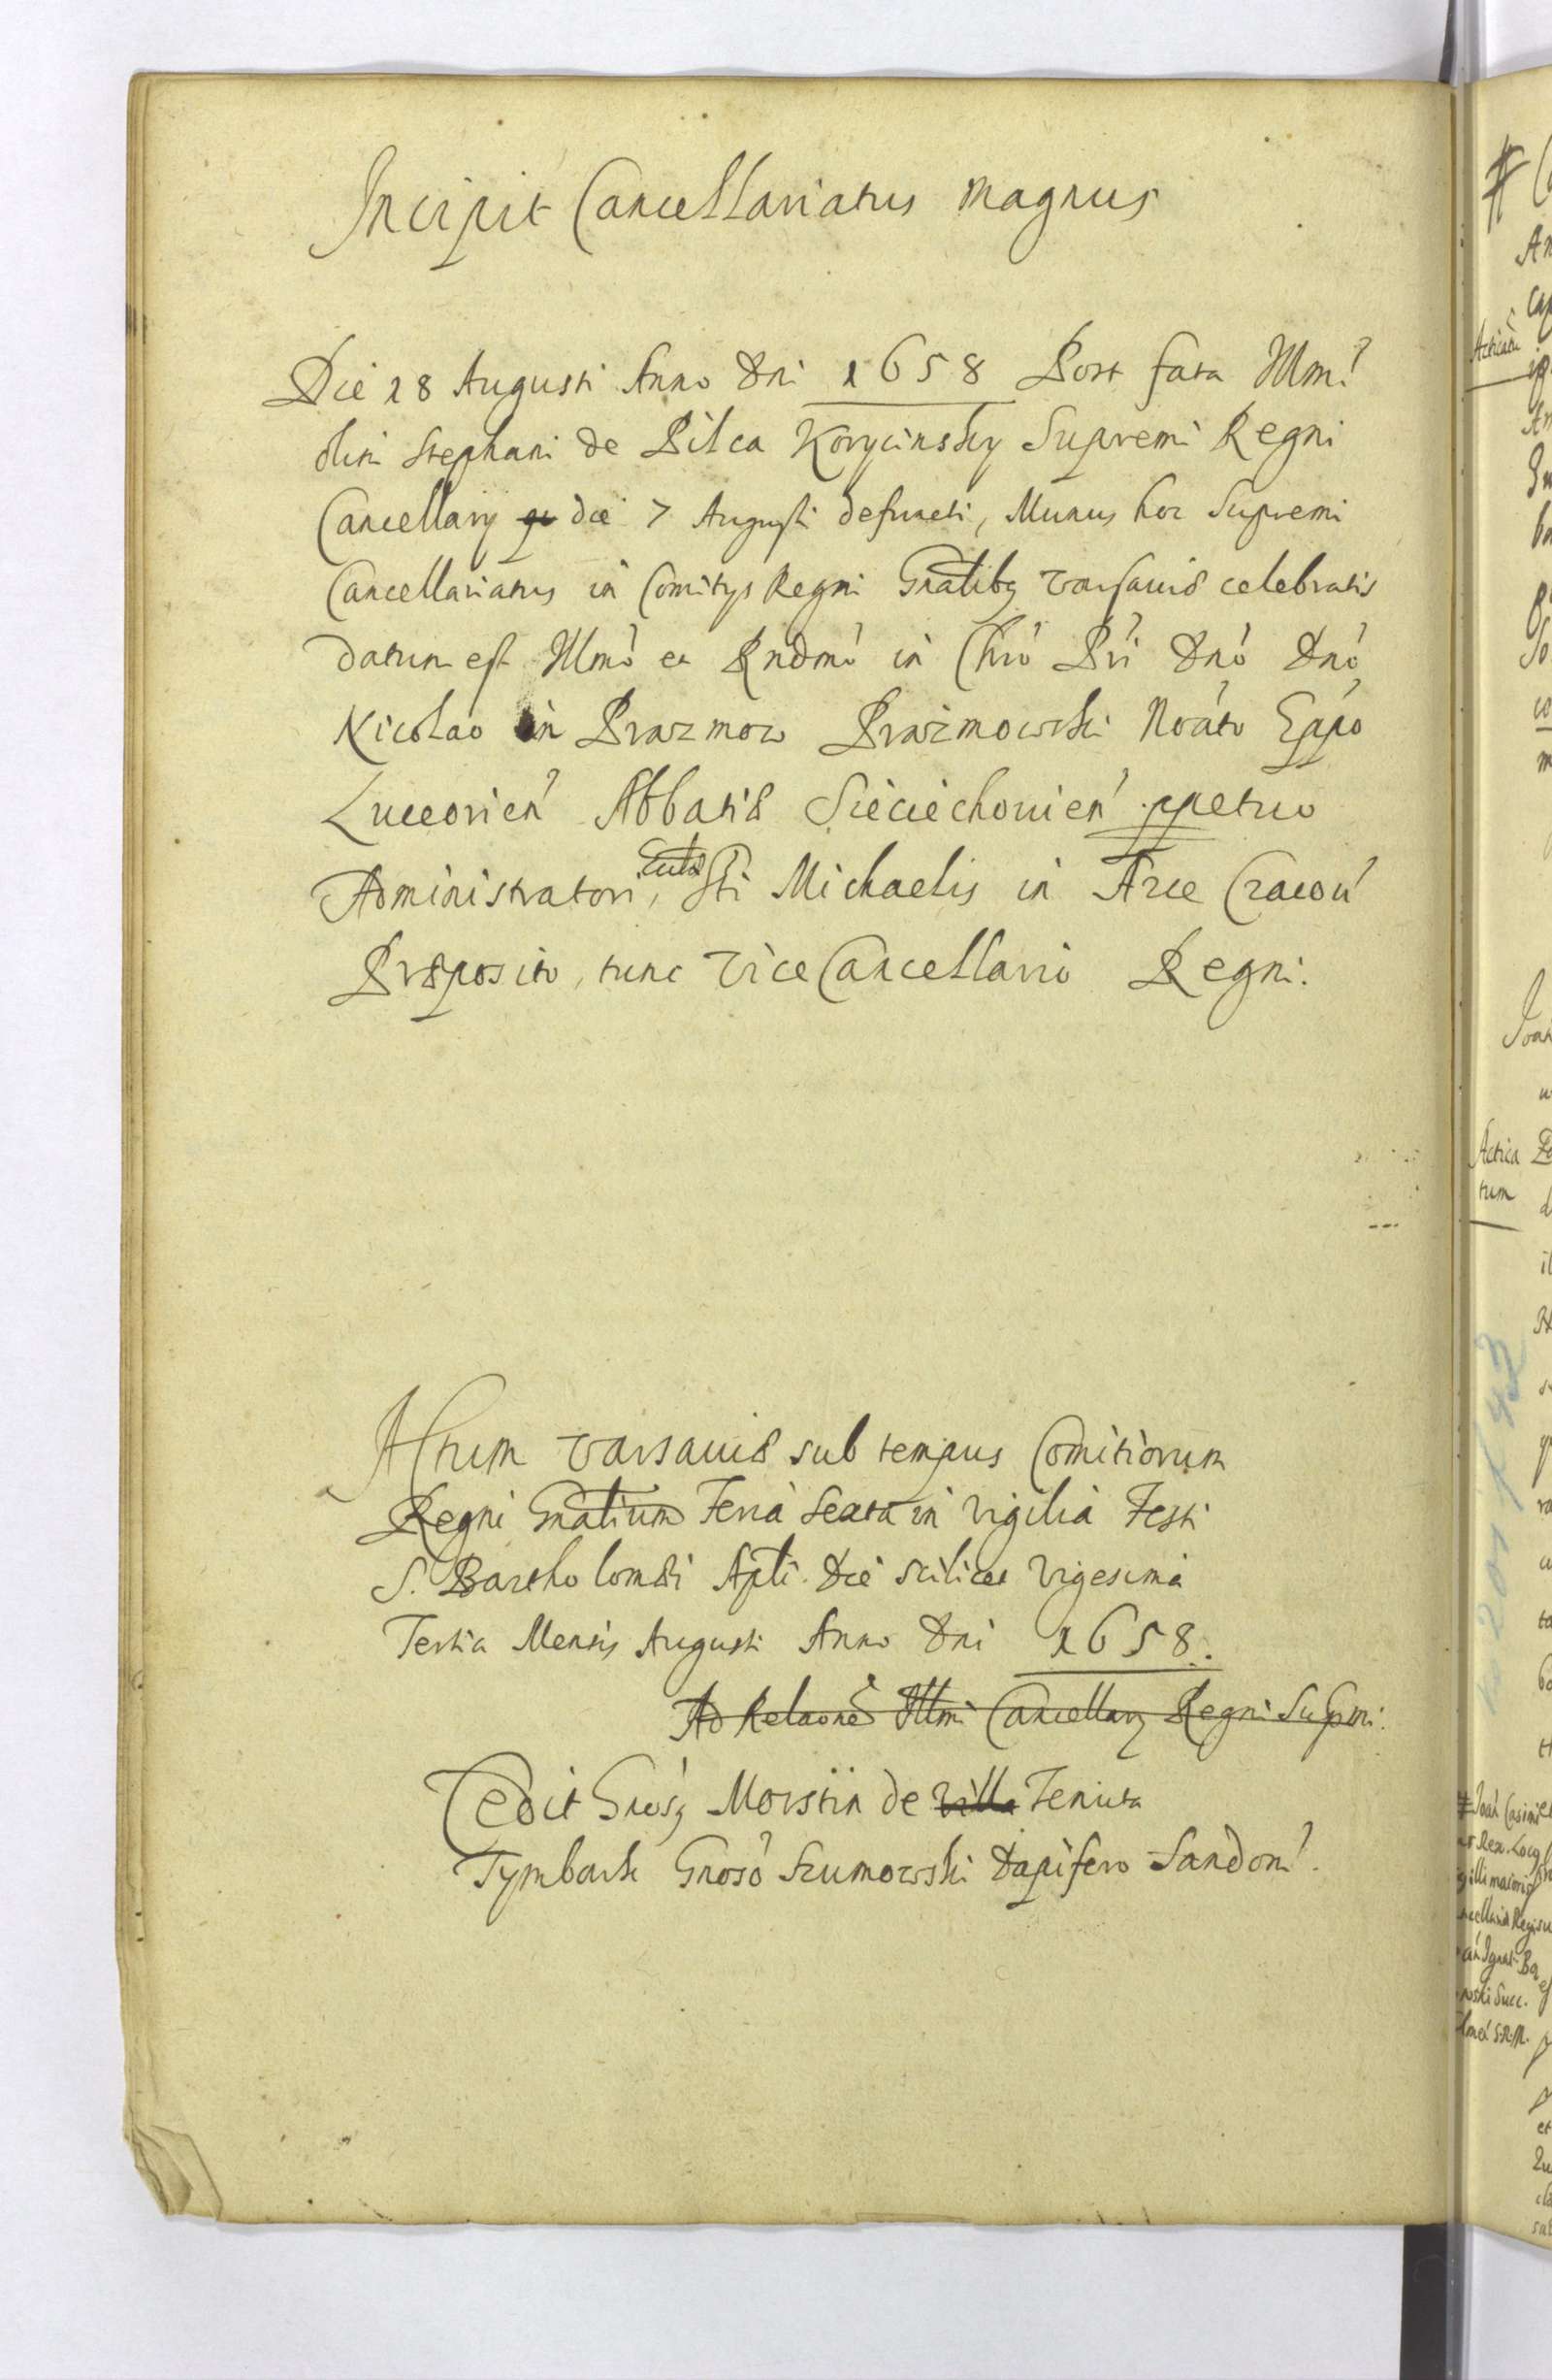 Incipit Cancellariatus magnus
Die 18 Augusti Anno Dni 1658 Post fata Illmi
olim Stephani de Pilca Korycinsky Supremi Regni
Cancellary die 7 Augusti defuncti, Munus hoc Supremi
Cancellariatus in Comitys Regni Gnalibq Varsauiæ celebratis
datum est Illmo et Rndmo in Chro Pri Dno Dno
Nicolao in Prazmow Prazmowski Noato Eppo
Luceorien Abbatiæ Sieciechouien ppetuo
Administratori, Sti Michaelis in Arce Cracou
Præposito, tunc ViceCancellario Regni.
Actum Varsauiæ sub tempus Comitiorum
Regni Gnalium Feria Sexta in Vigilia Festi
S. Bartholomæi Apli. die scilicet Vigesima
Tertia Mensis Augusti Anno Dni 1658.
Ad Relaone Illmi Cancellary Regni Supmi.
Cedit Gnosq Morstin de Villa Tenuta
Tymbark Gnoso Szumowski Dapifero Sandom.
Actica
tum